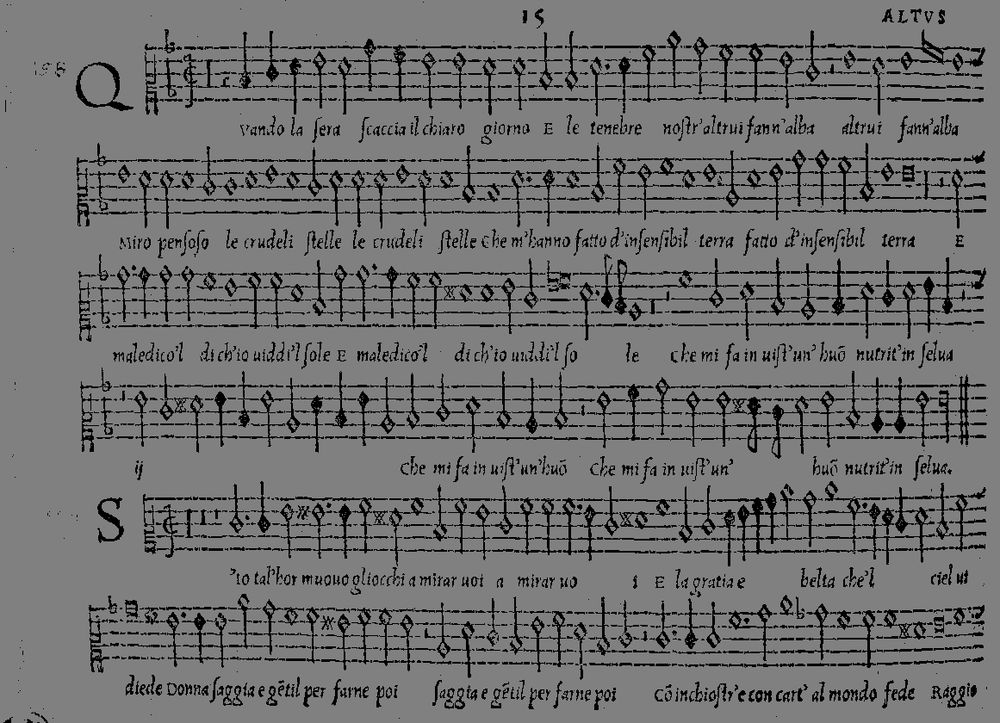 15
ALTVS
Q
Vando la sera scaccia il chiaro giorno E le tenebre nostr'altrui fann'alba altrui fann'alba
Miro pensoso le crudeli stelle le crudeli stelle Che m'hanno fatto d'insensibil terra fatto d'insensibil terra E
maledico'l di ch'io uiddi'l sole E maledico'l di ch'io uiddi'l so le Che mi fa in uist'un'huõ nutrit'in selua
ij Che mi fa in uist'un'huõ Che mi fa in uist'un' huõ nutrit'in selua.
S
'io tal'hor muouo gliocchi a mirar uoi a mirar uo i E la gratia e belta che'l ciel ui
diede Donna saggia e gẽtil per farne poi saggia e gẽtil per farne poi Cõ inchiostr'e con cart' al mondo fede Raggio